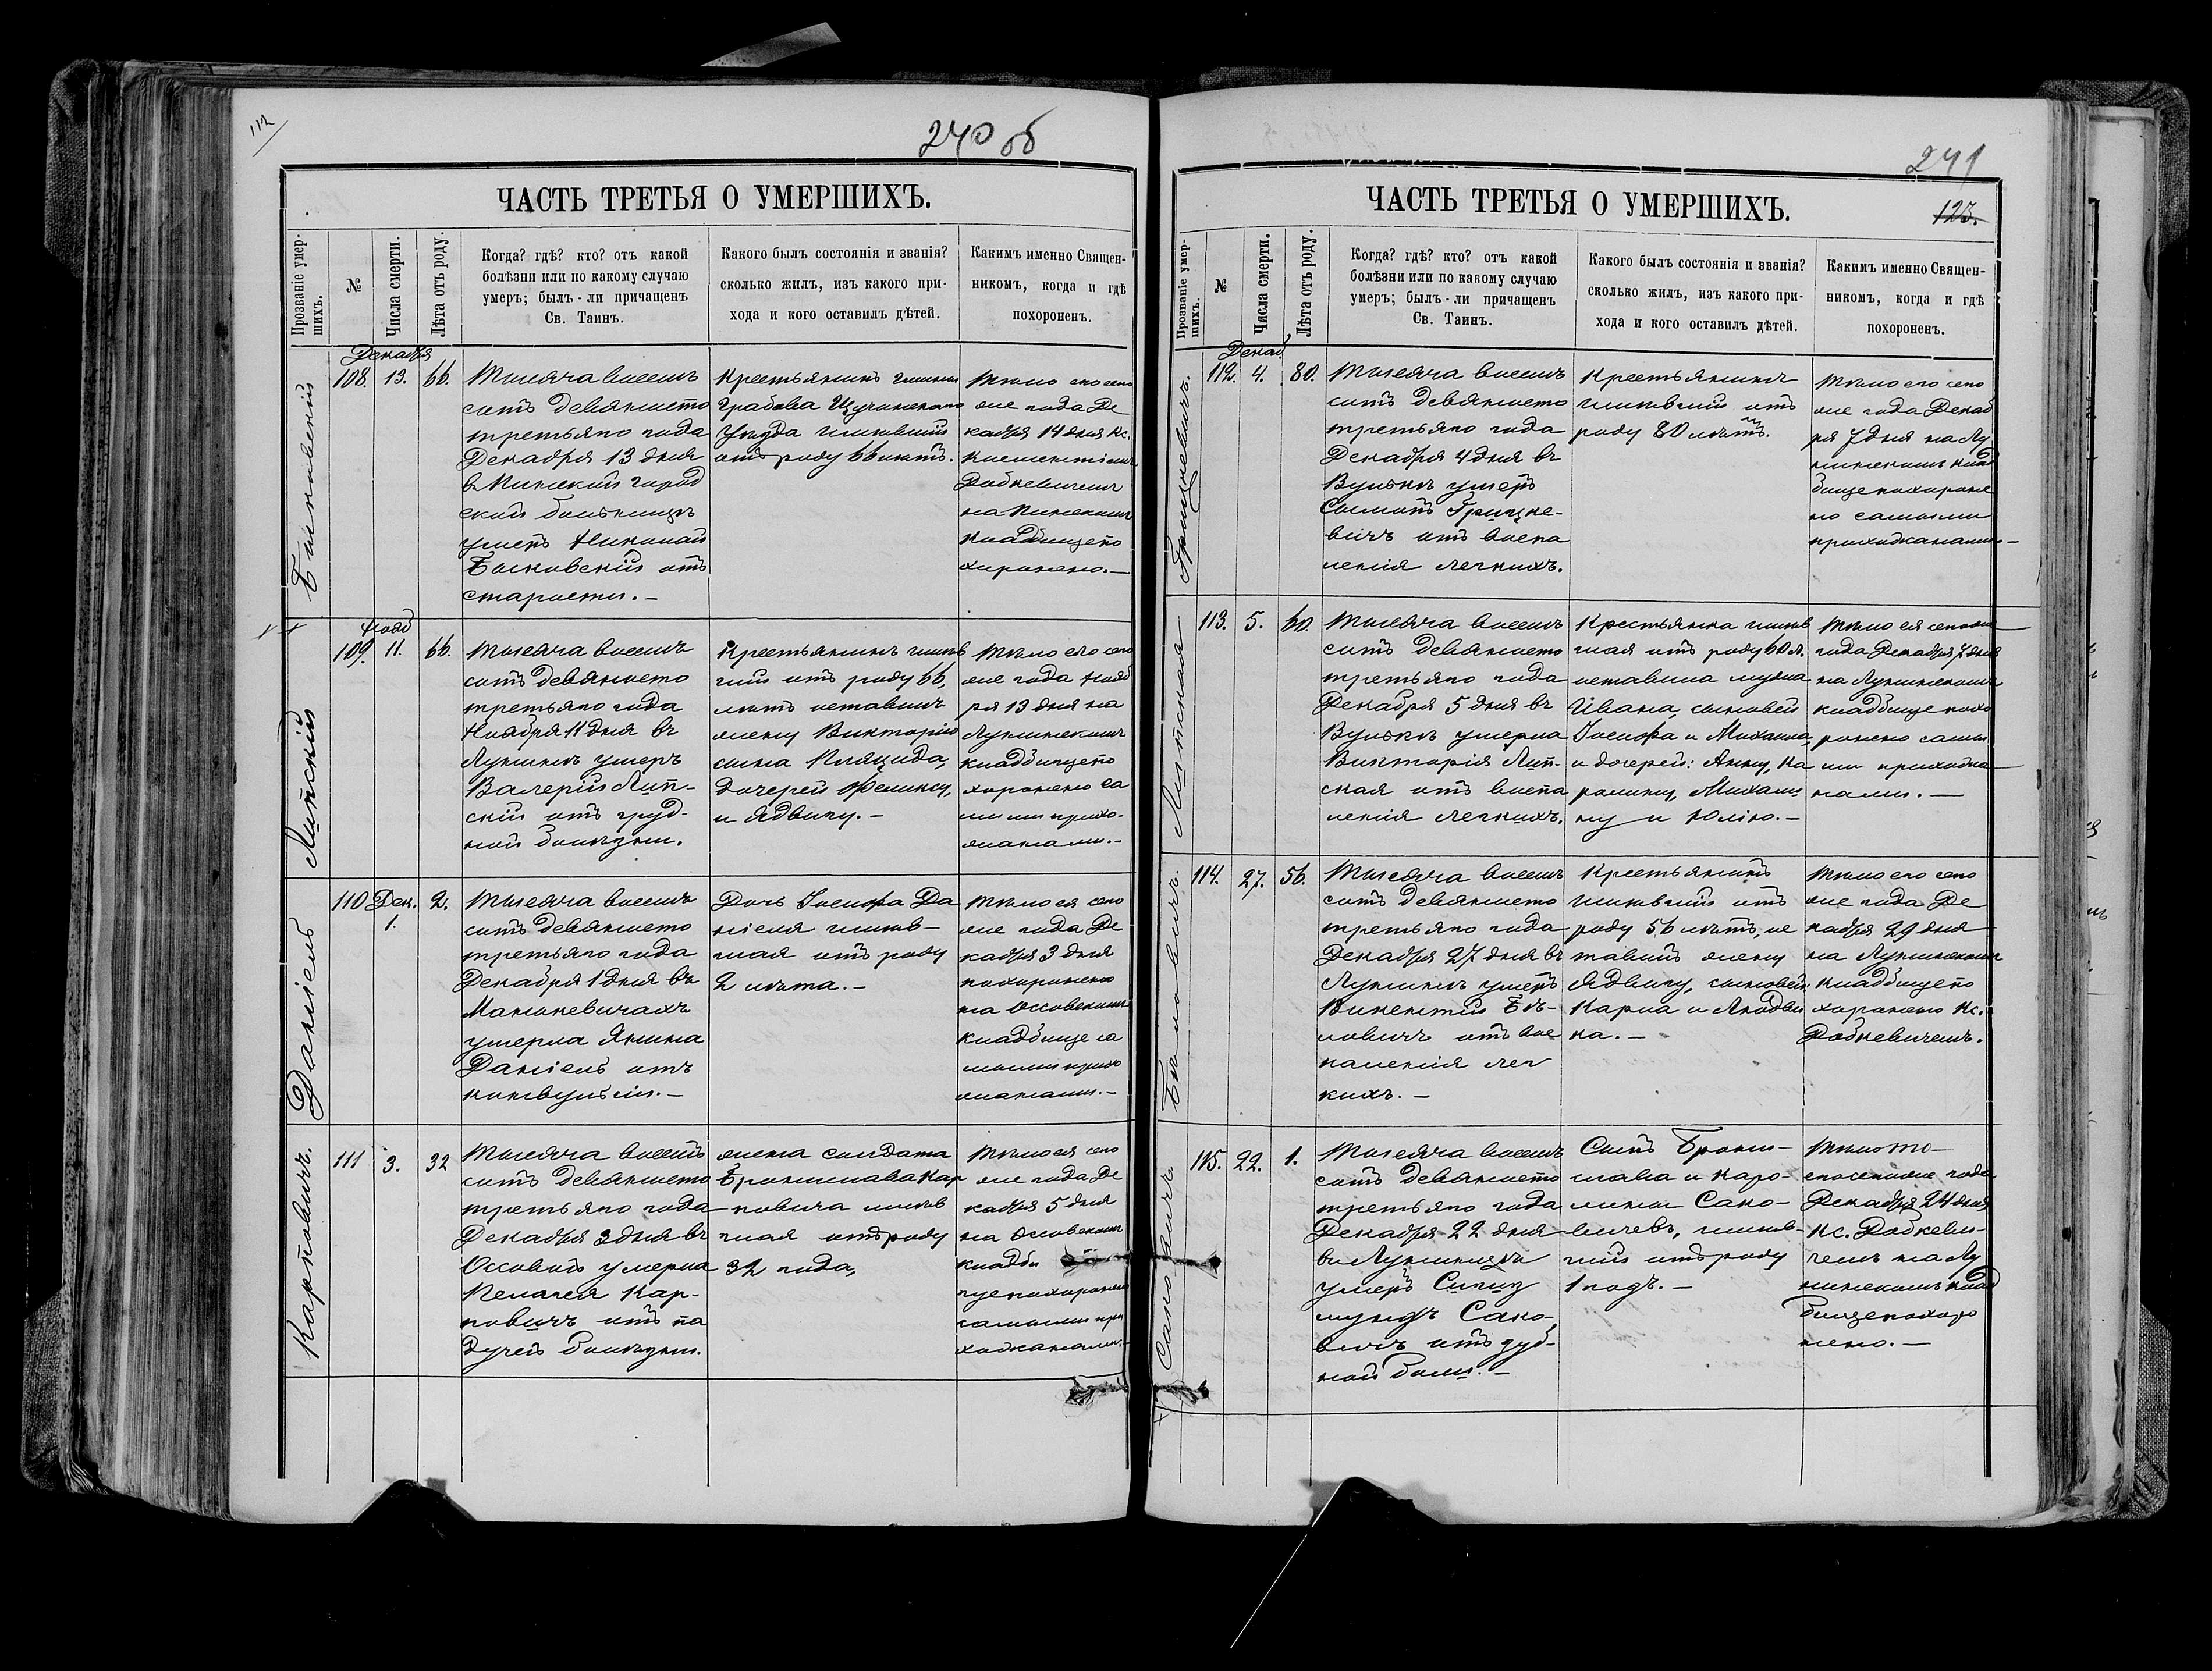 112
240 об
ЧАСТЬ ТРЕТЬЯ О УМЕРШИХЪ.
Прозваніе умер-
шихъ.
№
Числа смерти.
Лѣта отъ роду.
Когда? гдѣ? кто? отъ какой
болѣзни или по какому случаю
умеръ; былъ-ли причащенъ
Св. Таинъ.
Какого былъ состоянія и званія?
сколько жилъ, изъ какого при-
хода и кого оставилъ дѣтей.
Какимъ именно Священ-
никомъ, когда и гдѣ
похороненъ.
Декабря
108. 13. 66.
Тысяча восемь
сотъ девяносто
третьяго года
Декабря 13 дня
въ Минской город
ской больницѣ
умеръ Николай
отъ
старости.—
Крестьянинъ гмины
Грабова Щучинскаго
Уѣзда жившій
отъ роду 66 лѣтъ.
Тѣло его сего
же года Де
кабря 14 дня Кс.
Добкевичемъ
на Пинскомъ
кладбище по
хоронено.—
Липскій
Нояб
109. 11. 66.
Тысяча восемь
сотъ девяносто
третьяго года
Ноября 11 дня въ
Лунинѣ умеръ
Валерій Лип-
скій отъ груд-
ной болѣзни.
Крестьянинъ жив
шій отъ роду 66,
лѣтъ оставилъ
жену Викторію
сына Пляцида,
дочерей Феликсу,
и Ядвигу.—
Тѣло его сего
же года Нояб
ря 13 дня на
Лунинскомъ
кладбище по
хоронено са
мими прихо-
жанами.—
Даніель
110 Дек. 1. 2.
Тысяча восемь
сотъ девяносто
третьяго года
Декабря 1 дня въ
Манкевичахъ
умерла Янина
Даніель отъ
конвульсіи.—
Дочь Іосифа Да
ніеля жив-
шая отъ роду
2 лѣта.—
Тѣло ея сего
же года Де
кабря 3 дня
похоронено
на Оссовскомъ
кладбище са
мыми прихо
жанами.—
Карповичъ.
111 3. 32
Тысяча восемь
сотъ девяносто
третьяго года
Декабря 3 дня въ
Оссовой умерла
Пелагея Кар-
повичъ отъ па
дучей болѣзни.
жена солдата
Бронислава Кар
повича жив
шая отъ роду
32 года,
Тѣло ея сего
же года Де
кабря 5 дня
на Оссовскомъ
кладби
ще похоронено
самыми при
хожанами.—
241
ЧАСТЬ ТРЕТЬЯ О УМЕРШИХЪ.
125.
Прозваніе умер-
шихъ.
№
Числа смерти.
Лѣта отъ роду.
Когда? гдѣ? кто? отъ какой
болѣзни или по какому случаю
умеръ; былъ-ли причащенъ
Св. Таинъ.
Какого былъ состоянія и званія?
сколько жилъ, изъ какого при-
хода и кого оставилъ дѣтей.
Какимъ именно Священ-
никомъ, когда и гдѣ
похороненъ.
Грицкевичъ.
Декаб.
112. 4. 80.
Тысяча восемь
сотъ девяносто
третьяго года
Декабря 4 дня въ
Вулькѣ умеръ
Грицке-
вичъ отъ воспа
ленія легкихъ.
Крестьянинъ
жившій отъ
роду 80 лѣтъ.
Тѣло его сего
же года Декаб
ря 7 дня на Лу
нинскомъ клад
бище похороне
но самыми
прихожанами—
Липская
113. 5. 60.
Тысяча восемь
сотъ девяносто
третьяго года
Декабря 5 дня въ
Вулькѣ умерла
Викторія Лип-
ская отъ воспа
ленія легкихъ.
Крестьянка жив
шая отъ роду 60 л.
оставила мужа
Ивана, сыновей
Іосифа и Михаила,
и дочерей: Анну, Ка
ролину, Михали
ну и Юлію.—
Тѣло ея сего же
года Декабря 7 дня
на Лунинскомъ
кладбище похо
ронено самы
ми прихожа
нами.—
Бѣловичъ.
114. 27. 56.
Тысяча восемь
сотъ девяносто
третьяго года
Декабря 27 дня въ
Лунинѣ умеръ
Викентій Бѣ-
ловичъ отъ вос
паленія лег
кихъ.—
Крестьянинъ
жившій отъ
роду 56 лѣтъ, ос
тавилъ жену
Ядвигу, сыновей
Карла и Людви
ка.—
Тѣло его сего
же года Де
кабря 29 дня
на Лунинскомъ
кладбище по
хоронено Кс.
Добкевичемъ.
115. 22. 1.
Тысяча восемь
сотъ девяносто
третьяго года
Декабря 22 дня
въ Лунинцѣ
умеръ Сигиз
мундъ Сако-
вичъ отъ зуб-
ной боли.—
Сынъ Брони-
слава и Каро-
лины Сако-
вичевъ, жив-
шій отъ роду
1 годъ.—
Декабря 24 дня
Кс. Добкеви-
чемъ на Лу
нинскомъ клад
бище похоро
нено.—